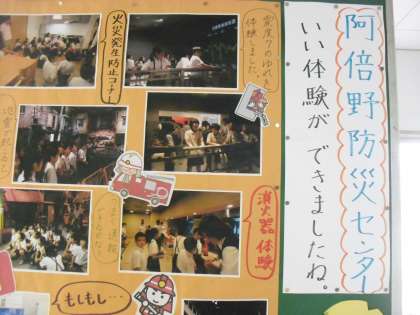 阿倍野防災センター
いい体験ができましたね。
震度7のゆれを
体験しました。
火災発生防止コーナー
消火器体験
もしもし…